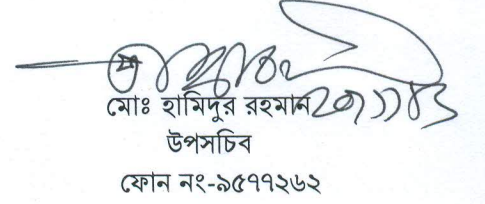 মোঃ হামিদুর রহমান
উপসচিব
ফোন নং-৯৫৭৭২৬২